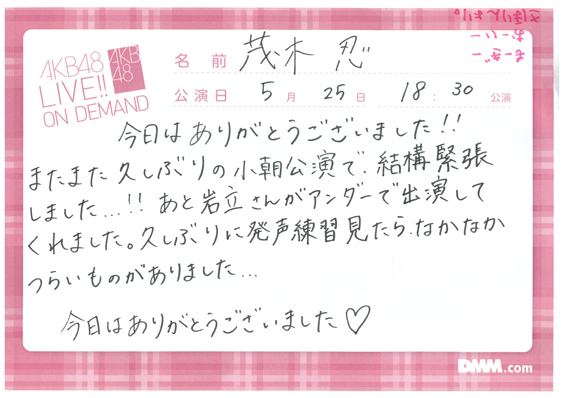 AKB48
LIVE!!
ON DEMAND
AKB
48
名前 茂木 忍
公演日 5月 25日 18:30 公演
今日はありがとうございました!!
またまた久しぶりの小朝公演で、結構緊張
しました…!! あと岩立さんがアンダーで出演して
くれました。久しぶりに発声練習見たら、なかなか
つらいものがありました…
今日はありがとうございました♡
DMM.com